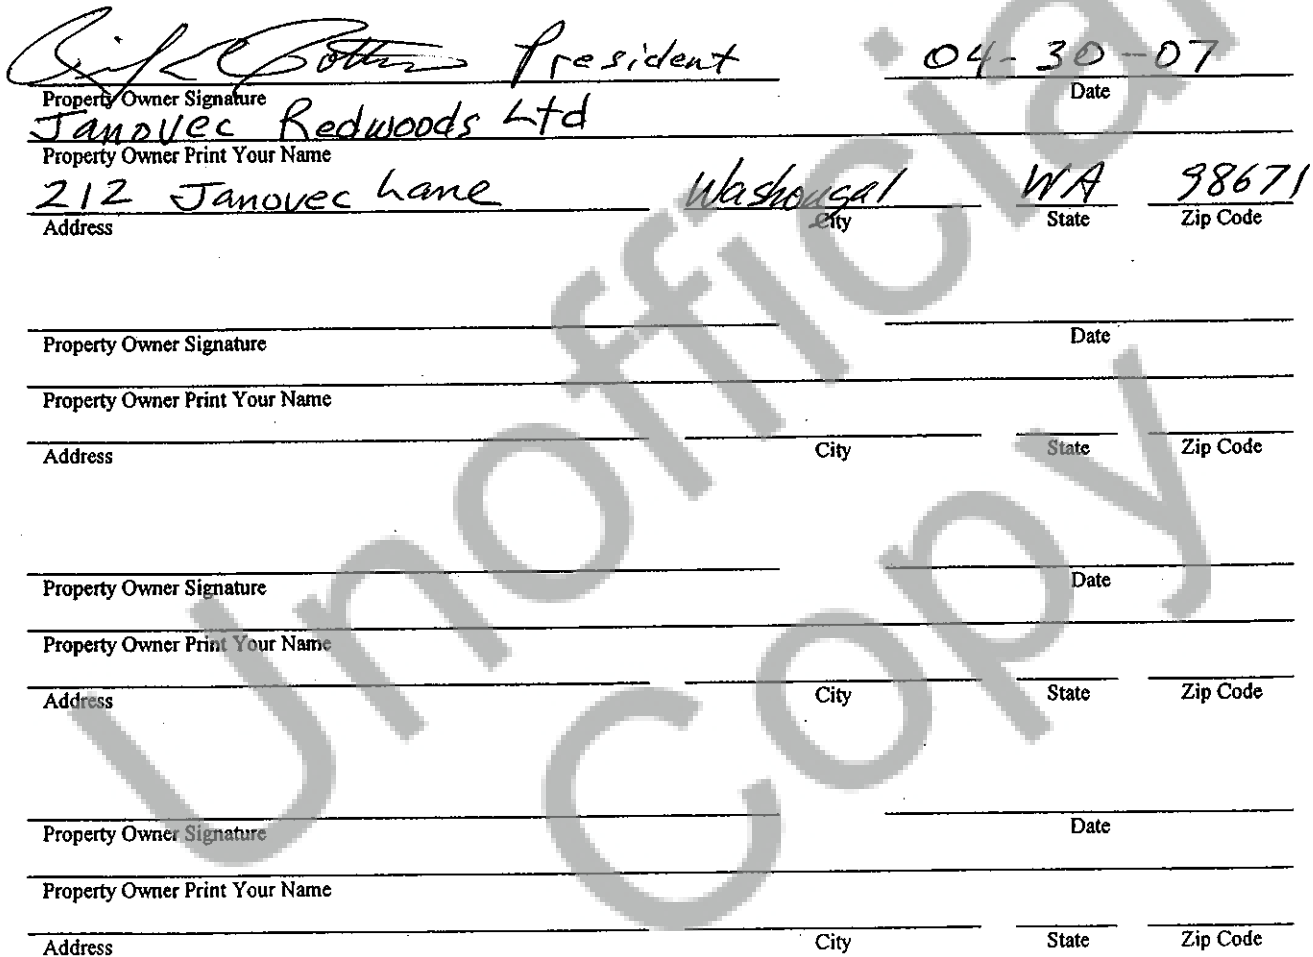 President 04-30-07
Property Owner Signature Date
Janovec Redwoods Ltd
Property Owner Print Your Name
212 Janovec Lane Washougal WA 98671
Address City State Zip Code
Property Owner Signature Date
Property Owner Print Your Name
Address City State Zip Code
Property Owner Signature Date
Property Owner Print Your Name
Address City State Zip Code
Property Owner Signature Date
Property Owner Print Your Name
Address City State Zip Code
Unofficial
Copy